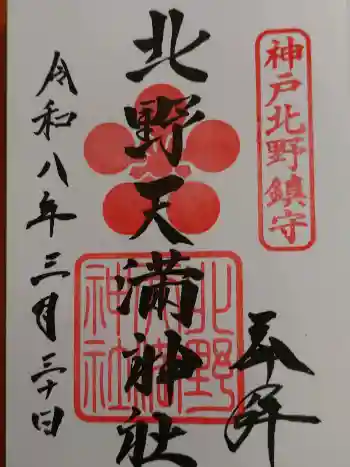 神戸北野鎮守
奉拝
北野天満神社
北野天満神社
令和八年三月三十日